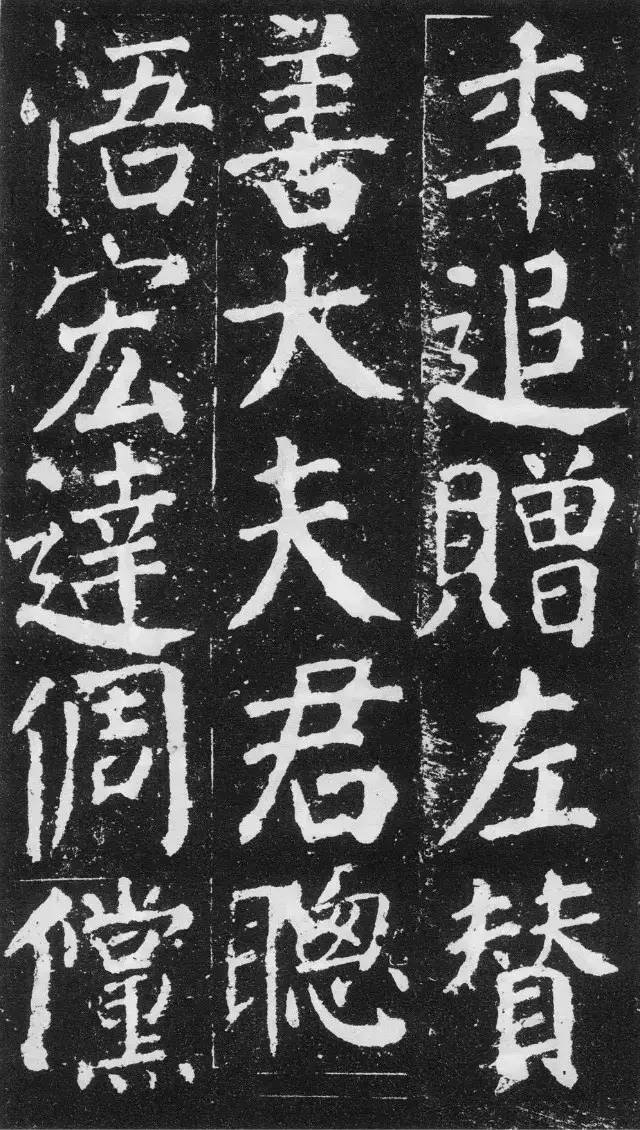 年追贈左贊
善大夫君聰
悟宏達倜儻